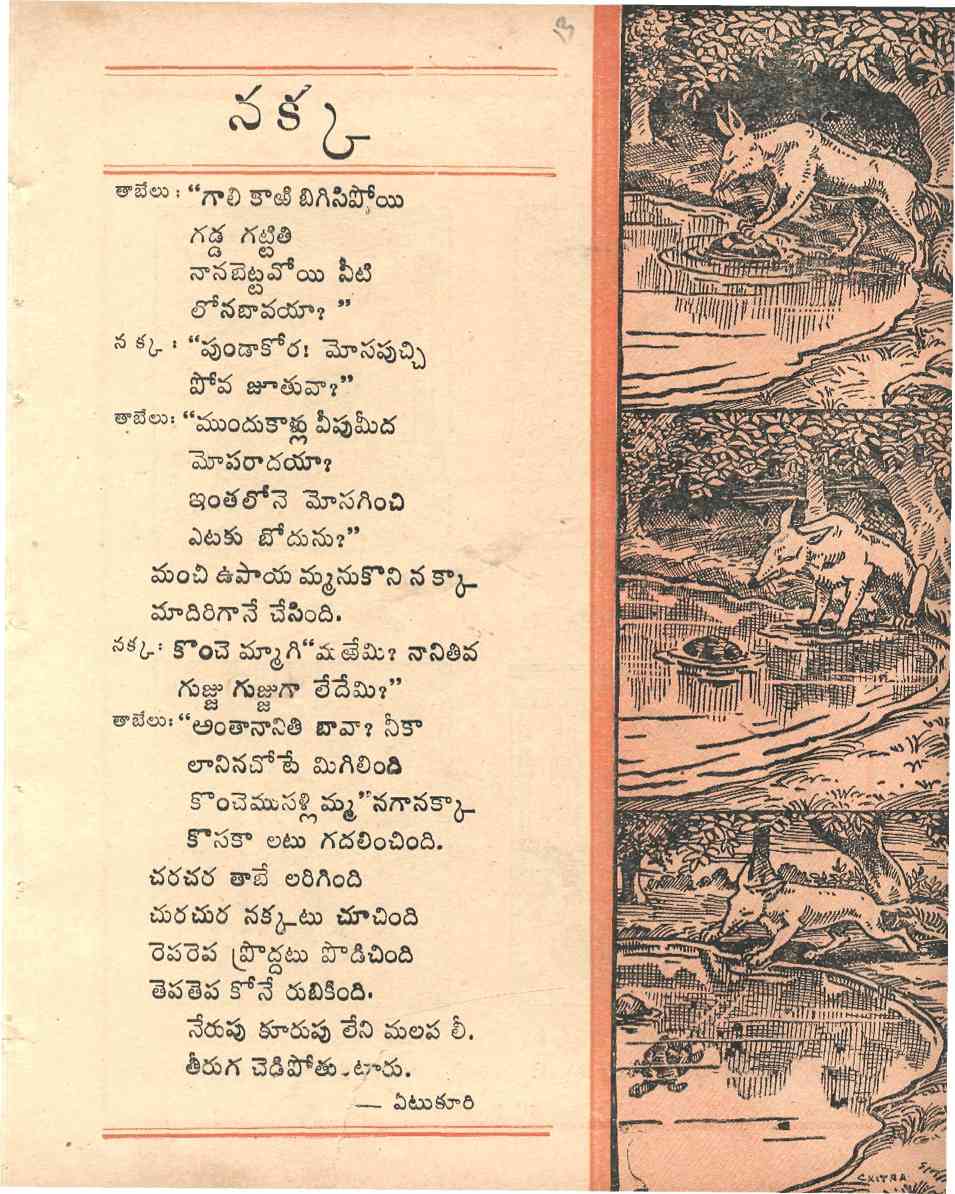 నక్క
తాబేలు : “గాలి కాఱి బిగిసిపోయి
గడ్డ గట్టితి
నానబెట్టవోయి నీటి
లోనబావయా? ”
నక్క : “పుండాకోర! మోసపుచ్చి
పోవ జూతువా?”
తాబేలు: “ముందుకాళ్లు వీపుమీద
మోపరాదయా?
ఇంతలోనె మోసగించి
ఎటకు బోదును?”
మంచి ఉపాయ మ్మనుకొని నక్కా
మాదిరిగానే చేసింది.
నక్క: కొంచె మ్మాగి “మఱేమి? నానితివ
గుజ్జు గుజ్జుగా లేదేమి?”
తాబేలు: “అంతానానితి బావా? నీకా
లానినచోటే మిగిలింది
కొంచెముసళ్లిమ్మ”నగానక్కా
కొసకా లటు గదలించింది.
చరచర తాబే లరిగింది
చురచుర నక్కటు చూచింది
రెపరెప ప్రొద్దటు పొడిచింది
తెపతెప కోనే రుబికింది.
నేరుపు కూరుపు లేని మలప లీ
తీరుగ చెడిపోతు టారు.
— ఏటుకూరి
CHITRA